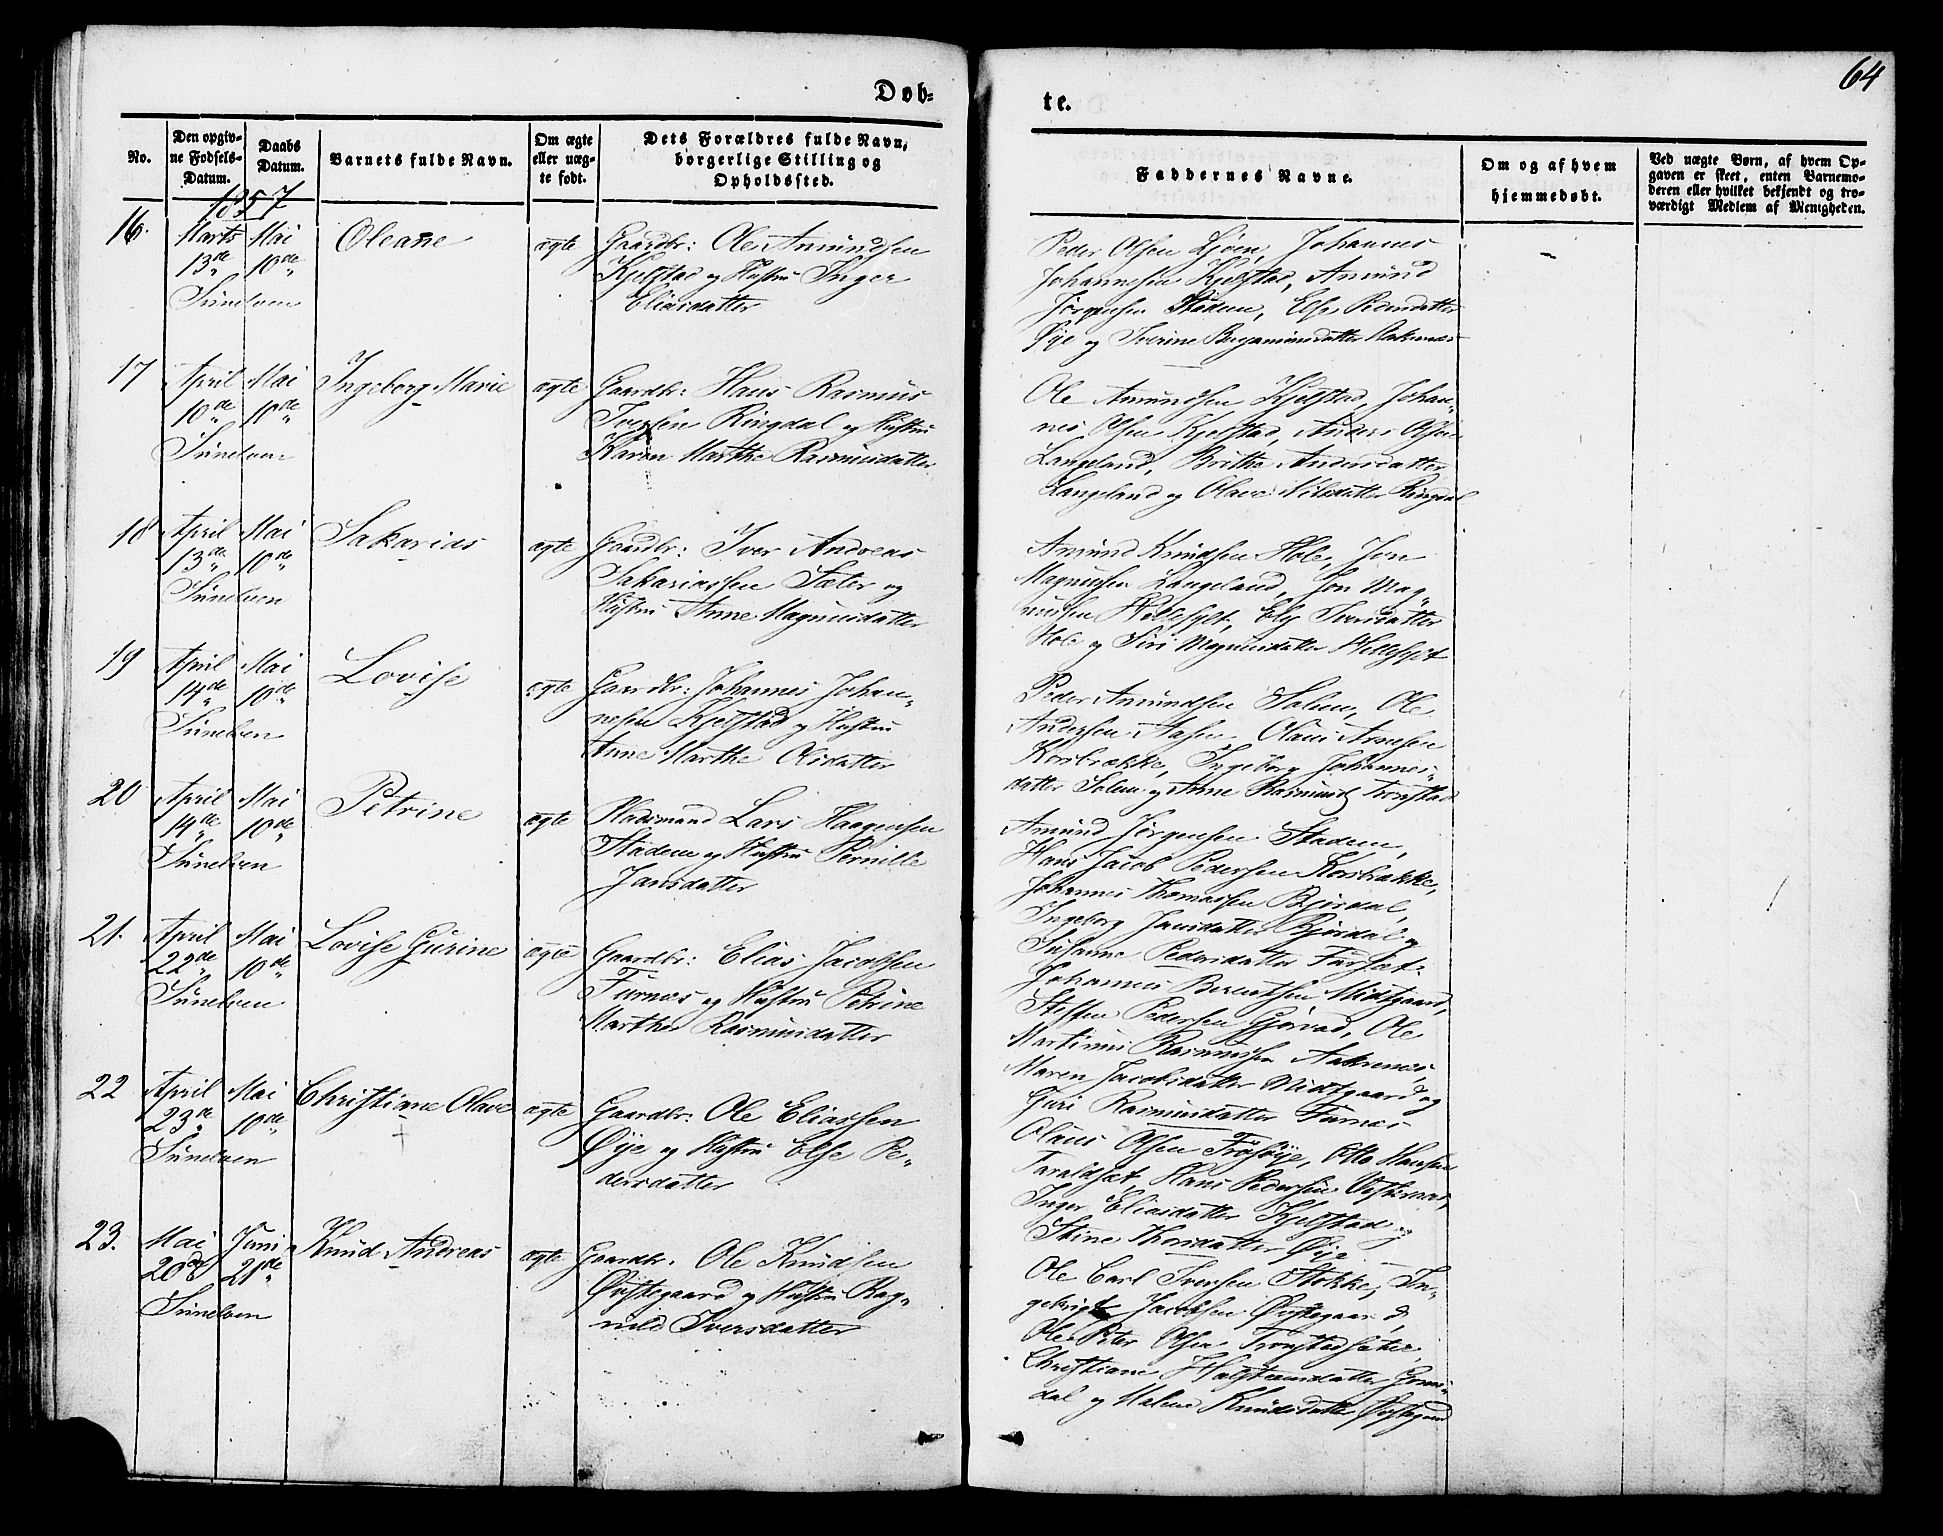 64
Døb-
te.
No.
Den opgiv-
ne Fødsels-
Datum.
Daabs
Datum.
Barnets fulde Navn.
Om ægte
eller uæg-
te født.
Dets Forældres fulde Navn,
borgerlige Stilling og
Opholdssted.
Faddernes Navne.
Om og af hvem
hjemmedøbt.
Ved uægte Børn, af hvem Op-
gaven er skeet, enten Barnemo-
deren eller hvilket bekjendt og tro-
værdigt Medlem af Menigheden.
1857
16.
Marts
13de
Sunelven
Mai
10de
Oleane
ægte
Gaardbr: Ole Amundsen
Kjelstad og Hustru Inger
Eliasdatter
Peder Olsen Ljøen, Johannes
Johannesen Kjelstad, Amund
Jørgensen Stadem, Else Pedersdatter
Øye og Iverine Benjaminsdatter
17
April
10de
Sunelven
Mai
10de
Ingeborg Marie
ægte
Gaardbr: Hans Rasmus
Iversen Ringdal og Hustru
Karen Marthe Rasmusdatter
Ole Amundsen Kjelstad, Johan-
nes Olsen Kjelstad, Anders Olsen
Langeland, Brithe Andersdatter
Langeland og Olave Nilsdatter Ringdal
18
April
13de
Sunelven
Mai
10de
Sakarias
ægte
Gaardbr: Iver Andreas
Sakariassen Sæter og
Hustru Anne Magnusdatter
Amund Knudsen Hole, Jon
Magnussen Langeland, Jon Mag-
nussen Hellesylt, Ely Iversdatter
Hole og Siri Magnusdatter Hellesylt
19
April
14de
Sunelven
Mai
10de
Lovise
ægte
Gaardbr: Johannes Johan-
nesen Kjelstad og Hustru
Anne Marthe Olsdatter
Peder Amundsen Solem, Ole
Andersen Aasen, Olaus Arnesen
Korsbrække, Ingeborg Johannes-
datter Solem og Anne Rasmusd Tronstad
20
April
19de
Sunelven
Mai
10de
Petrine
ægte
Pladsmand Lars Haagensen
Stadem og Hustru Pernille
Jansdatter
Amund Jørgensen Stadem,
Hans Jacob Pedersen Korsbrække,
Johannes Thomassen Bjørdal,
Ingeborg Jansdatter Bjørdal og
Susanne Pedersdatter Furset
21.
April
22de
Sunelven
Mai
10de
Lovise Gurine
ægte
Gaardbr: Elias Jacobsen
Furnæs og Hustru Petrine
Marthe Rasmusdatter
Johannes Berentsen Midtgaard,
Steffen Pedersen Gjørvad, Ole
Martinus Rasmussen Aakrenes,
Maren Jacobsdatter Midtgaard og
Guri Rasmusdatter Furnæs
22
April
23de
Sunelven
Mai
10de
Christiane Olave
ægte
Gaardbr: Ole Eliassen
Øye og Hustru Else Pe-
dersdatter
Olaus Olsen Frøsøye, Otto Hansen
Taraldset, Hans Pedersen
Inger Eliasdatter Kjelstad og
Stine Thorsdatter Øye
23.
Mai
20de
Sunelven
Juni
21de
Knud Andreas
ægte
Gaardbr: Ole Knudsen
Øvstegaard og Hustru Rag-
nild Iversdatter
Ole Carl Iversen Stokke, In-
gebrigt Jacobsen Øvstegaard,
Ole Peter Olsen Tronstadsæter,
Christiane Halstensdatter
dal og Malene Knudsdatter Øvstegaard